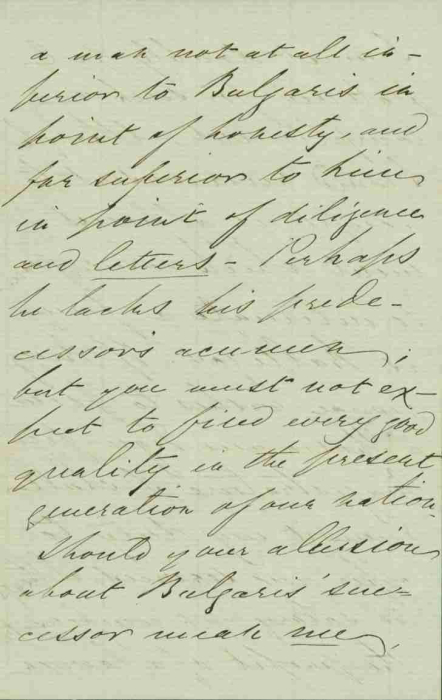 a man not at all in-
ferior to Bulgaris in
point of honesty, and
far superior to him
in point of diligence
and letters - Perhaps
he lacks his prede-
cessors acumen,;
but you must not ex-
pect to find every good
quality in the present
generation of our nation.
Should your allusion
about Bulgaris' suc-
cessor mean me,